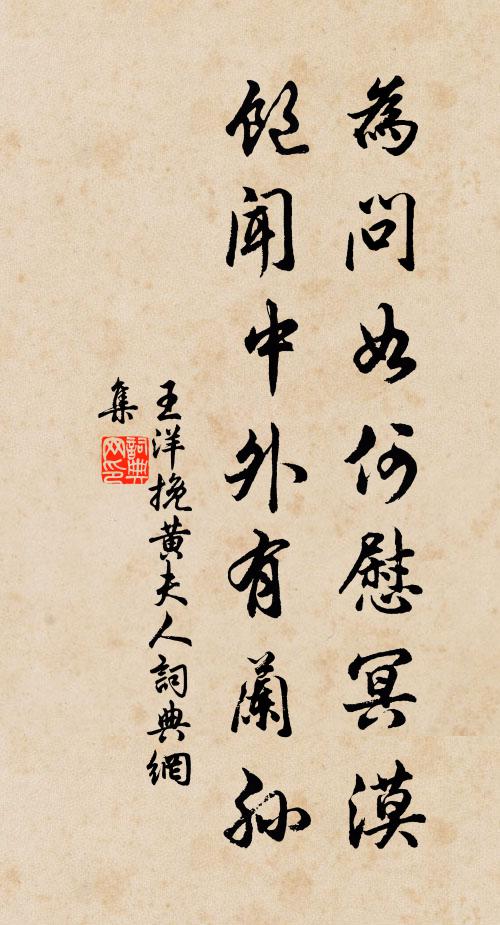 為問如何慰冥漠
飽聞中外有蘭孫
王洋挽黄夫人詞典網
集
詞典网印